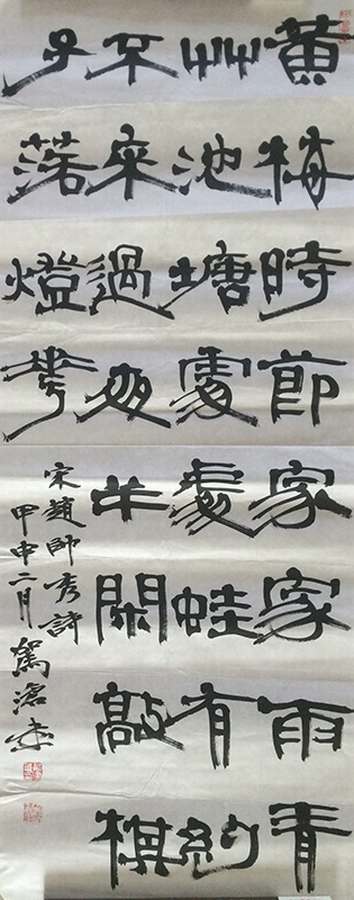 黄梅時節家家雨青
艸池塘處處蛙有約
不來過夜半閑敲棋
子落燈花
宋趙師秀詩
甲申二月駕滄